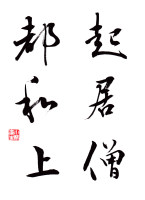 起居僧
都和上